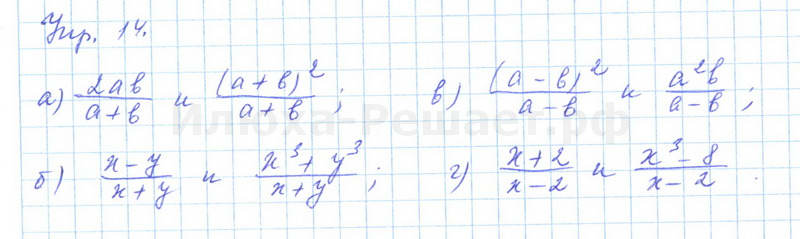 Упр. 14.
а) -2ab/(a+b) и (a+b)²/(a+b); в) (a-b)²/(a-b) и a²b/(a-b);
б) (x-y)/(x+y) и (x³+y³)/(x+y); г) (x+2)/(x-2) и (x³-8)/(x-2).
Илюха-Решает.рф